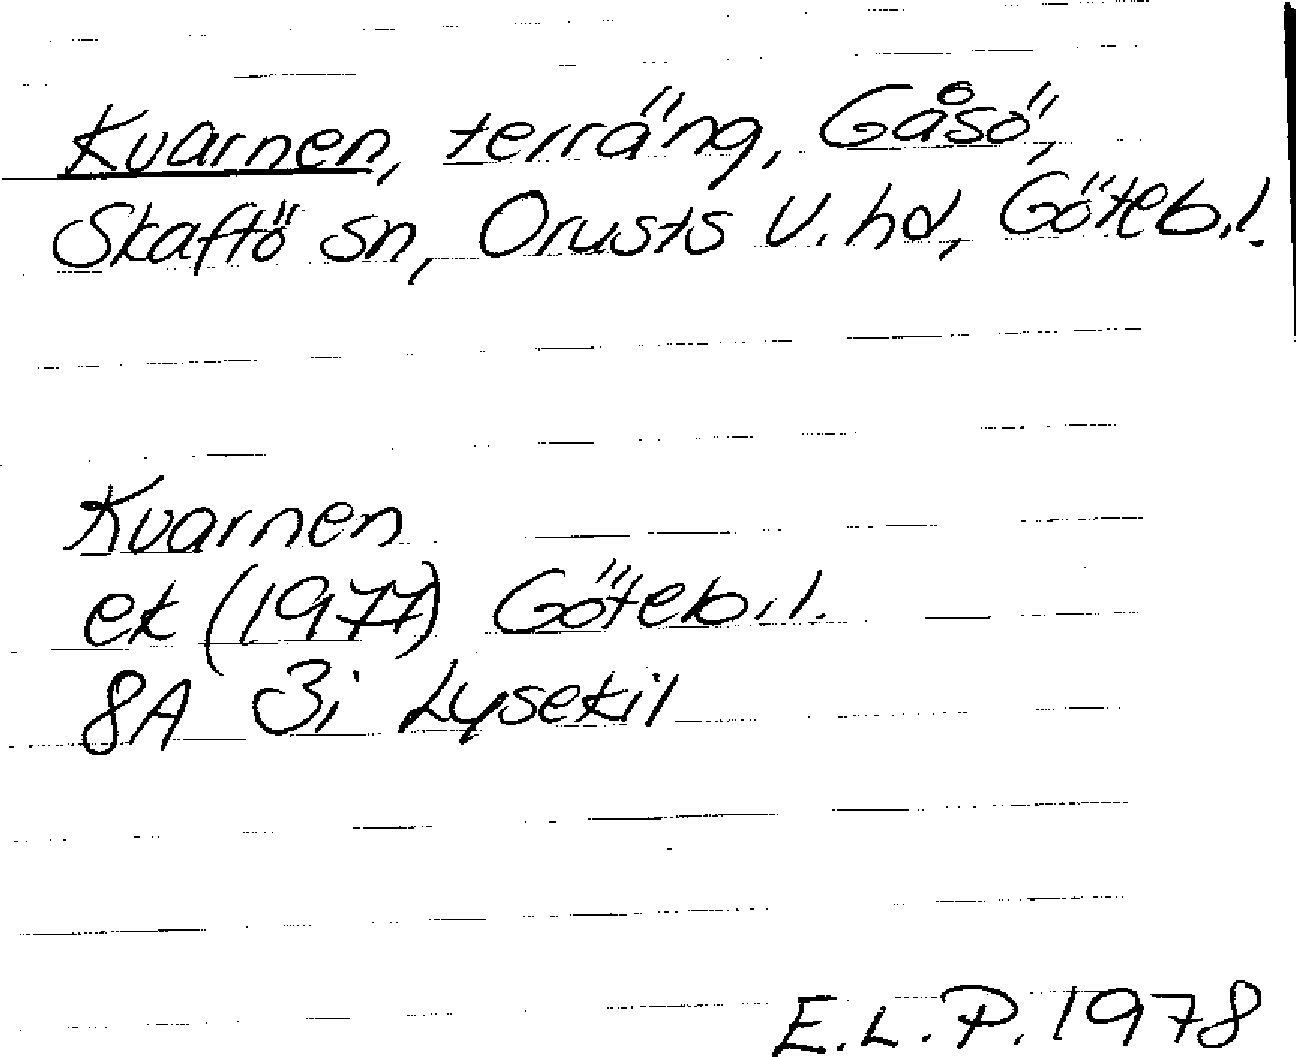 Kvarnen, terräng, Gåsö,
Skaftö sn, Orusts V. hd, Göteb.l.
Kvarnen
ek (1977) Göteb.l.
8A 3i Lysekil
E.L.P. 1978